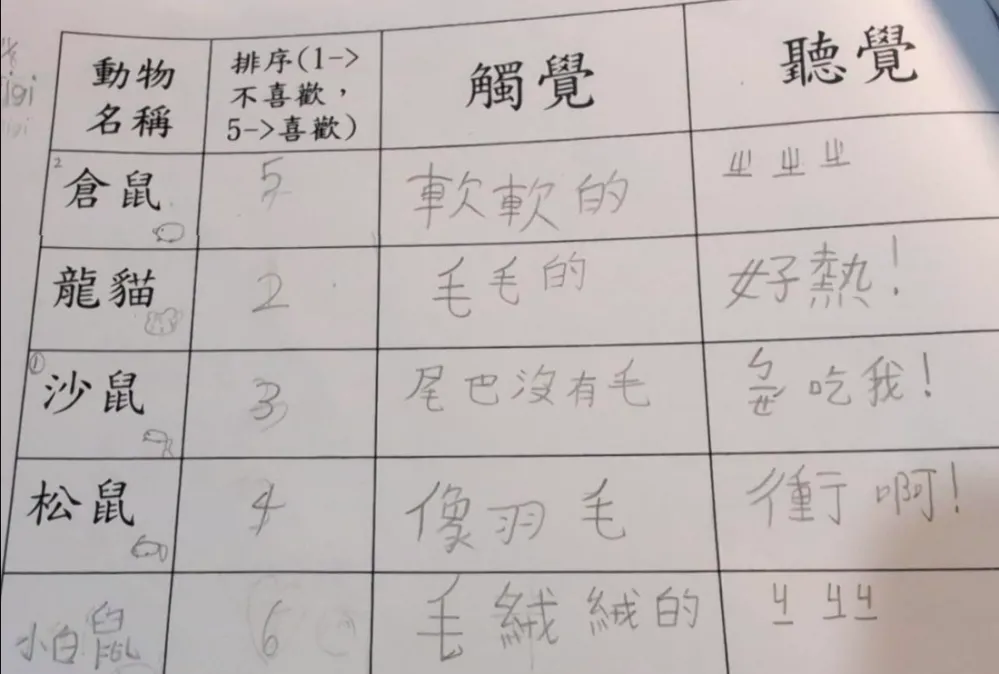 動物
名稱
排序(1->
不喜歡，
5->喜歡)
觸覺
聽覺
2
倉鼠
5
軟軟的
ㄓ ㄓ ㄓ
龍貓
2
毛毛的
好熱！
①
沙鼠
3
尾巴沒有毛
ㄅㄧㄝ吃我！
松鼠
4
像羽毛
衝啊！
小白鼠
6
毛絨絨的
ㄐㄧ ㄐㄧ ㄐㄧ